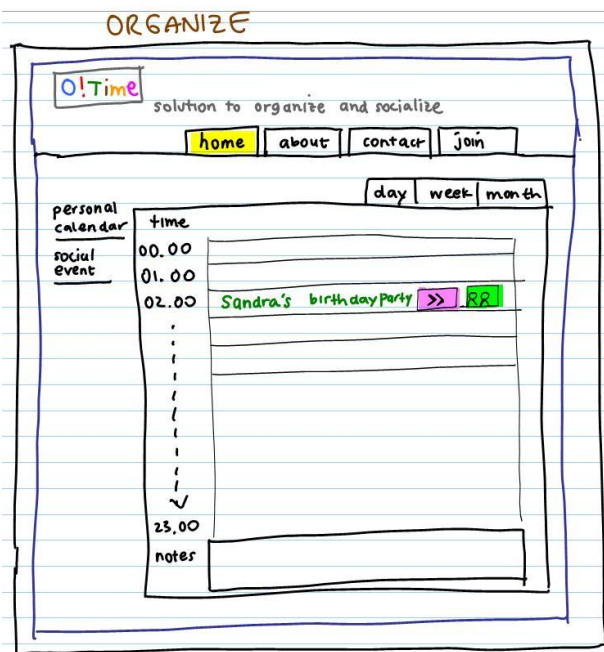 ORGANIZE
O!Time
solution to organize and socialize
home about contact join
day week month
personal
calendar
time
social
event
00.00
01.00
02.00 Sandra's birthday party >>
23.00
notes